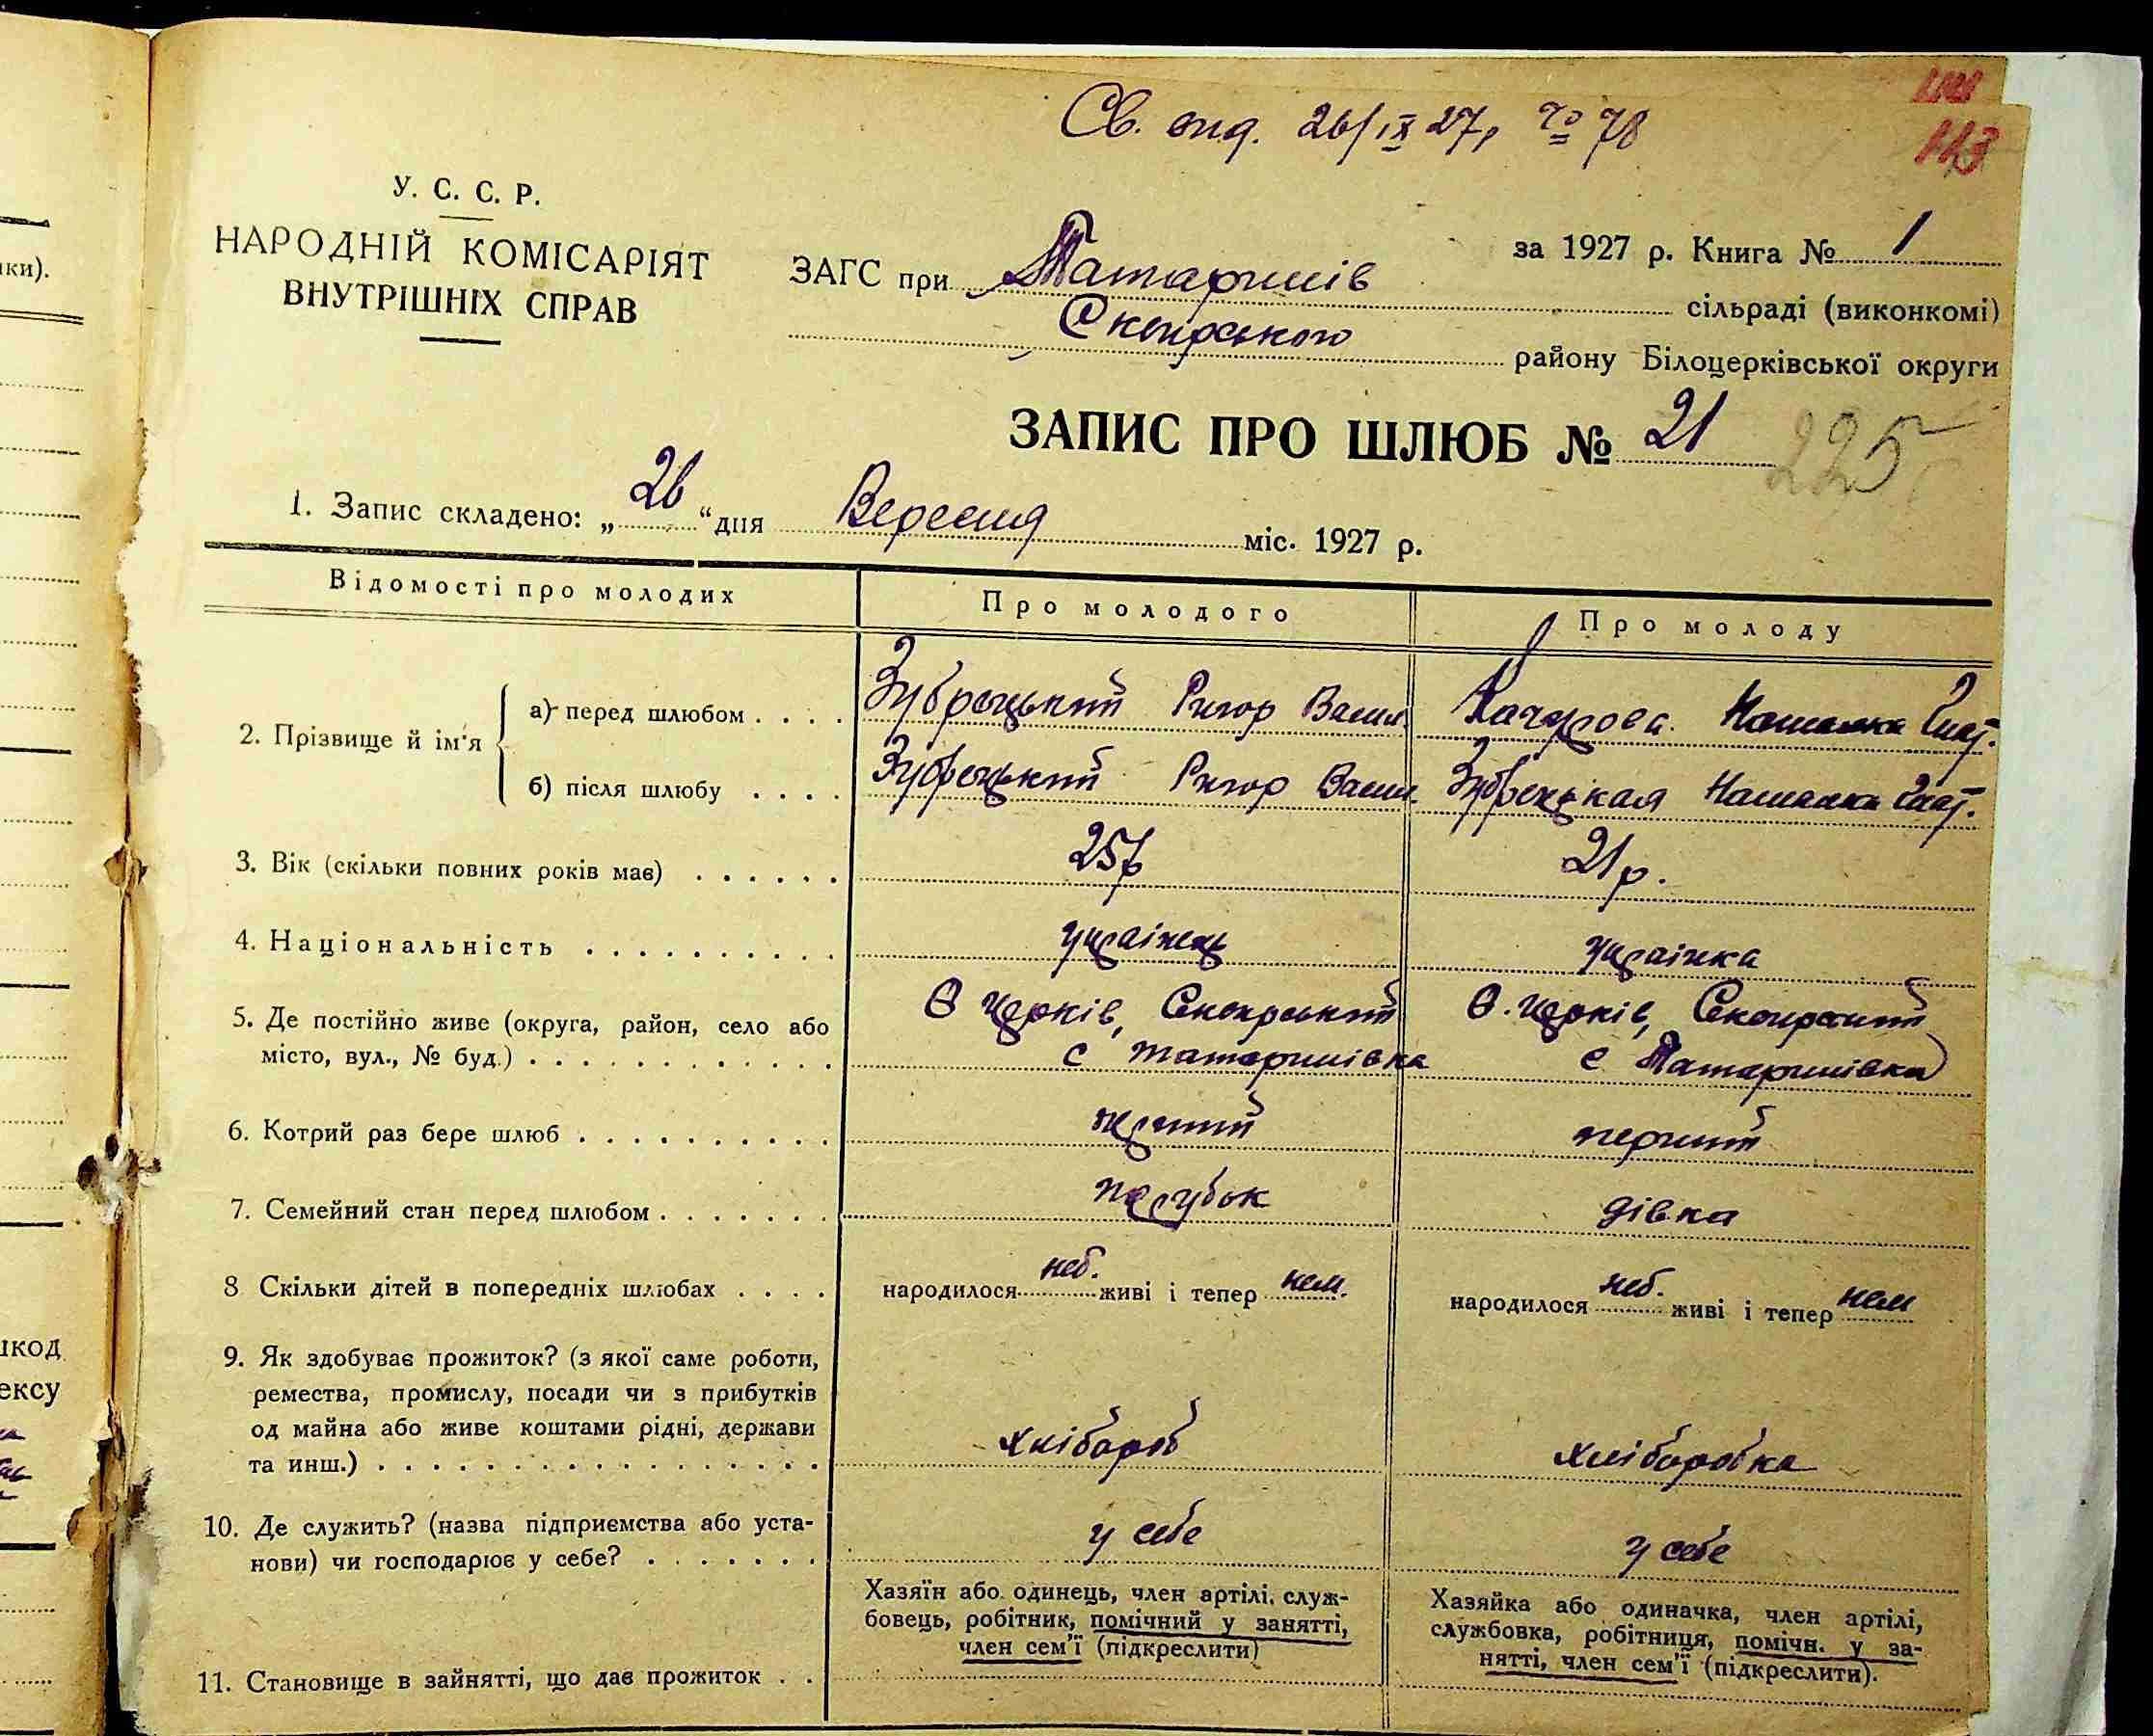 ики).
шкод
ексу
Св. вид. 26/IX 27р № 78
113
У. С. С. Р.
НАРОДНІЙ КОМІСАРІЯТ
ВНУТРІШНІХ СПРАВ
за 1927 р. Книга № 1
ЗАГС при Татаринів сільраді (виконкомі)
Сквирського району Білоцерківської округи
ЗАПИС ПРО ШЛЮБ № 21 225
1. Запис складено: „26“ дня Вересня міс. 1927 р.
Відомості про молодих Про молодого Про молоду
2. Прізвище й ім'я
а) перед шлюбом . . . . Зубрецький Ригор Васил. Качурова
б) після шлюбу . . . . Зубрецький Ригор Васил. Зубрецькая
3. Вік (скільки повних років має) . . . . . . 25р 21р.
4. Національність . . . . . . . . . . українець українка
5. Де постійно живе (округа, район, село або Б Церків, Сквирський Б. Церків, Сквирський
місто, вул., № буд.) . . . . . . . . . . . . с Татаринівка с Татаринівка
6. Котрий раз бере шлюб . . . . . . . . . . перший перший
7. Семейний стан перед шлюбом . . . . . . . парубок дівка
8 Скільки дітей в попередніх шлюбах . . . . народилося неб. живі і тепер нем. народилося неб. живі і тепер нем
9. Як здобуває прожиток? (з якої саме роботи,
ремества, промислу, посади чи з прибутків
од майна або живе коштами рідні, держави
та инш.) . . . . . . . . . . . . . . . . . хлібороб хліборобка
10. Де служить? (назва підприємства або уста-
нови) чи господарює у себе? . . . . . . . у себе у себе
Хазяїн або одинець, член артілі, служ-
бовець, робітник, помічний у занятті,
член сем'ї (підкреслити)
Хазяйка або одиначка, член артілі,
службовка, робітниця, помічн. у за-
нятті, член сем'ї (підкреслити).
11. Становище в зайнятті, що дає прожиток . .